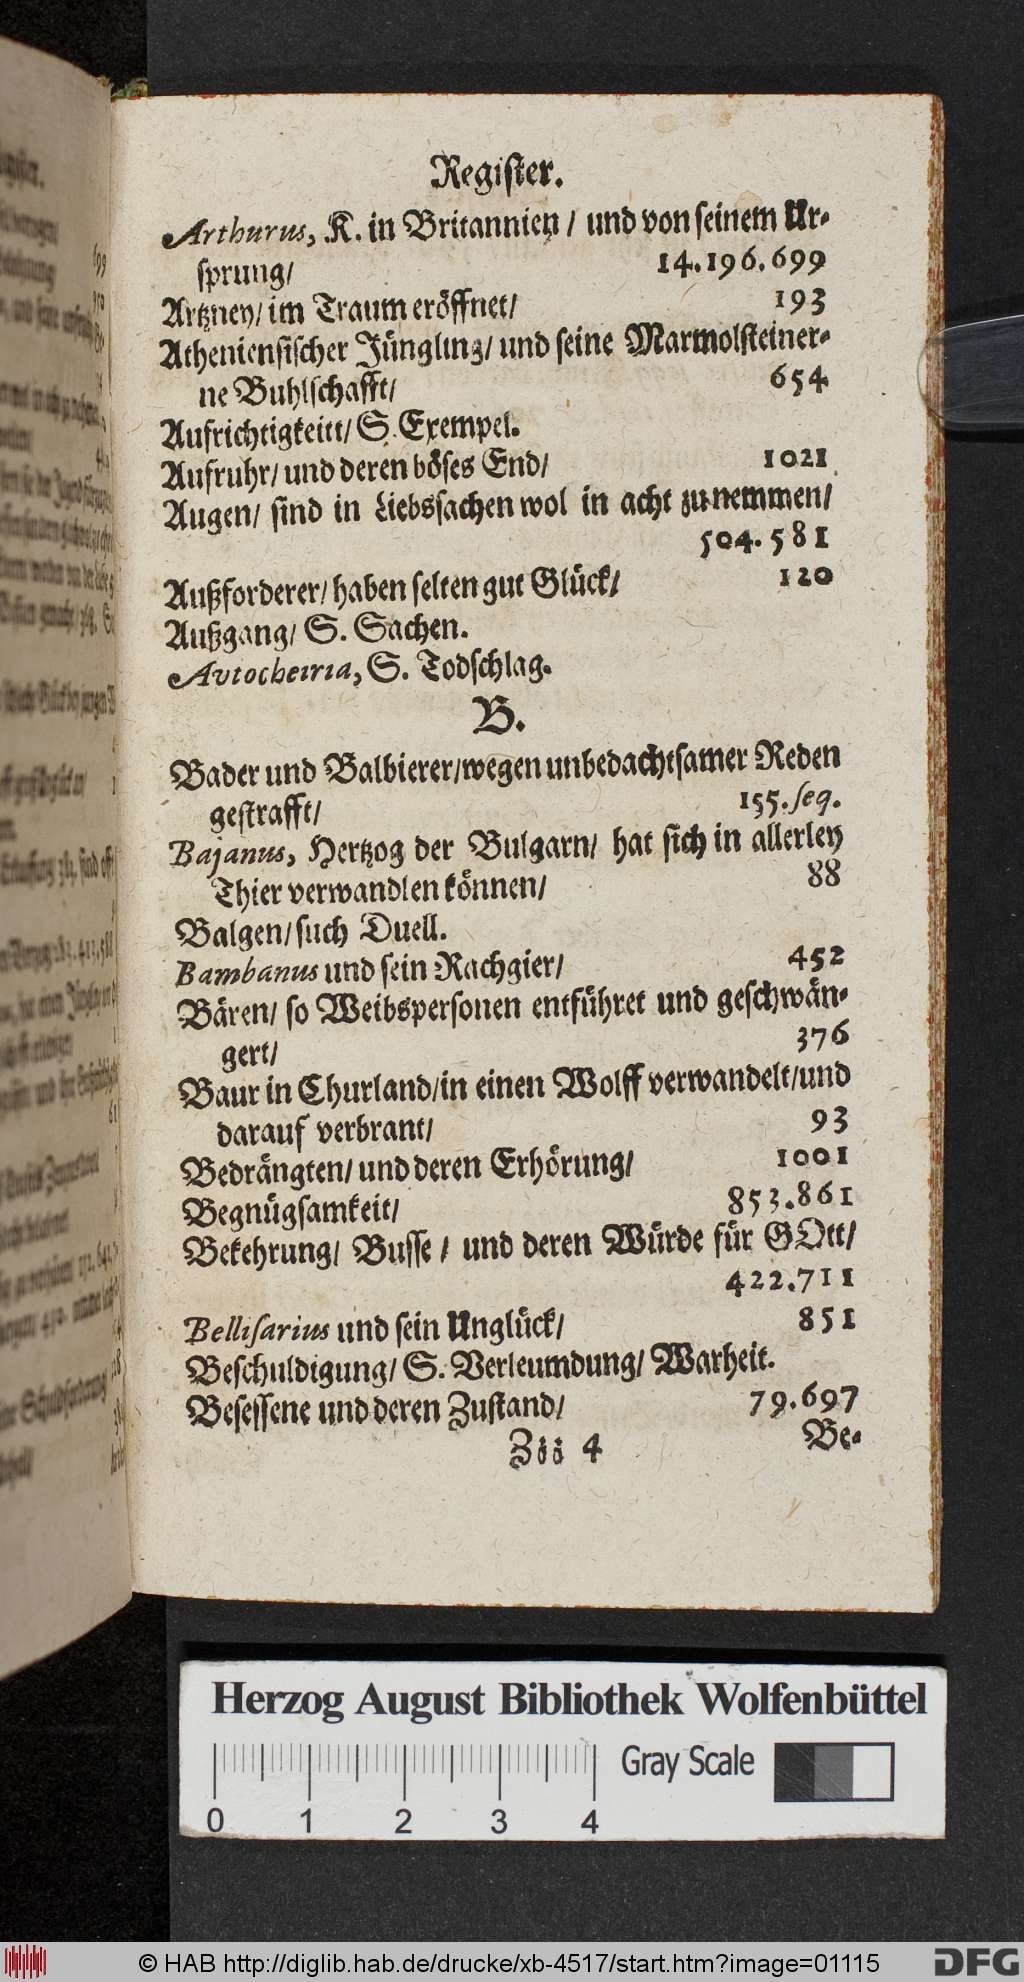 Register.
Arthurus, K. in Britannien / und von seinem Ur-
sprung/ 14.196.699
Artzney/ im Traum eröffnet/ 193
Atheniensischer Jüngling/ und seine Marmolsteiner-
ne Buhlschafft/ 654
Aufrichtigkeitt/ S. Exempel.
Aufruhr/ und deren böses End/ 1021
Augen/ sind in Liebssachen wol in acht zu nemmen/
504. 581
Außforderer/ haben selten gut Glück/ 120
Außgang/ S. Sachen.
Avtocheiria, S. Todschlag.
B.
Bader und Balbierer/wegen unbedachtsamer Reden
gestrafft/ 155. seq.
Bajanus, Hertzog der Bulgarn/ hat sich in allerley
Thier verwandlen können/ 88
Balgen/ such Duell.
Bambanus und sein Rachgier/ 452
Bären/ so Weibspersonen entführet und geschwän-
gert/ 376
Baur in Churland/in einen Wolff verwandelt/und
darauf verbrant/ 93
Bedrängten/ und deren Erhörung/ 1001
Begnügsamkeit/ 853.861
Bekehrung/ Busse / und deren Würde für GOtt/
422.711
Bellisarius und sein Unglück/ 851
Beschuldigung/ S. Verleumdung/ Warheit.
Besessene und deren Zustand/ 79.697
Zöö 4 Be-
Herzog August Bibliothek Wolfenbüttel
Gray Scale
0 1 2 3 4
© HAB http://diglib.hab.de/drucke/xb-4517/start.htm?image=01115
DFG